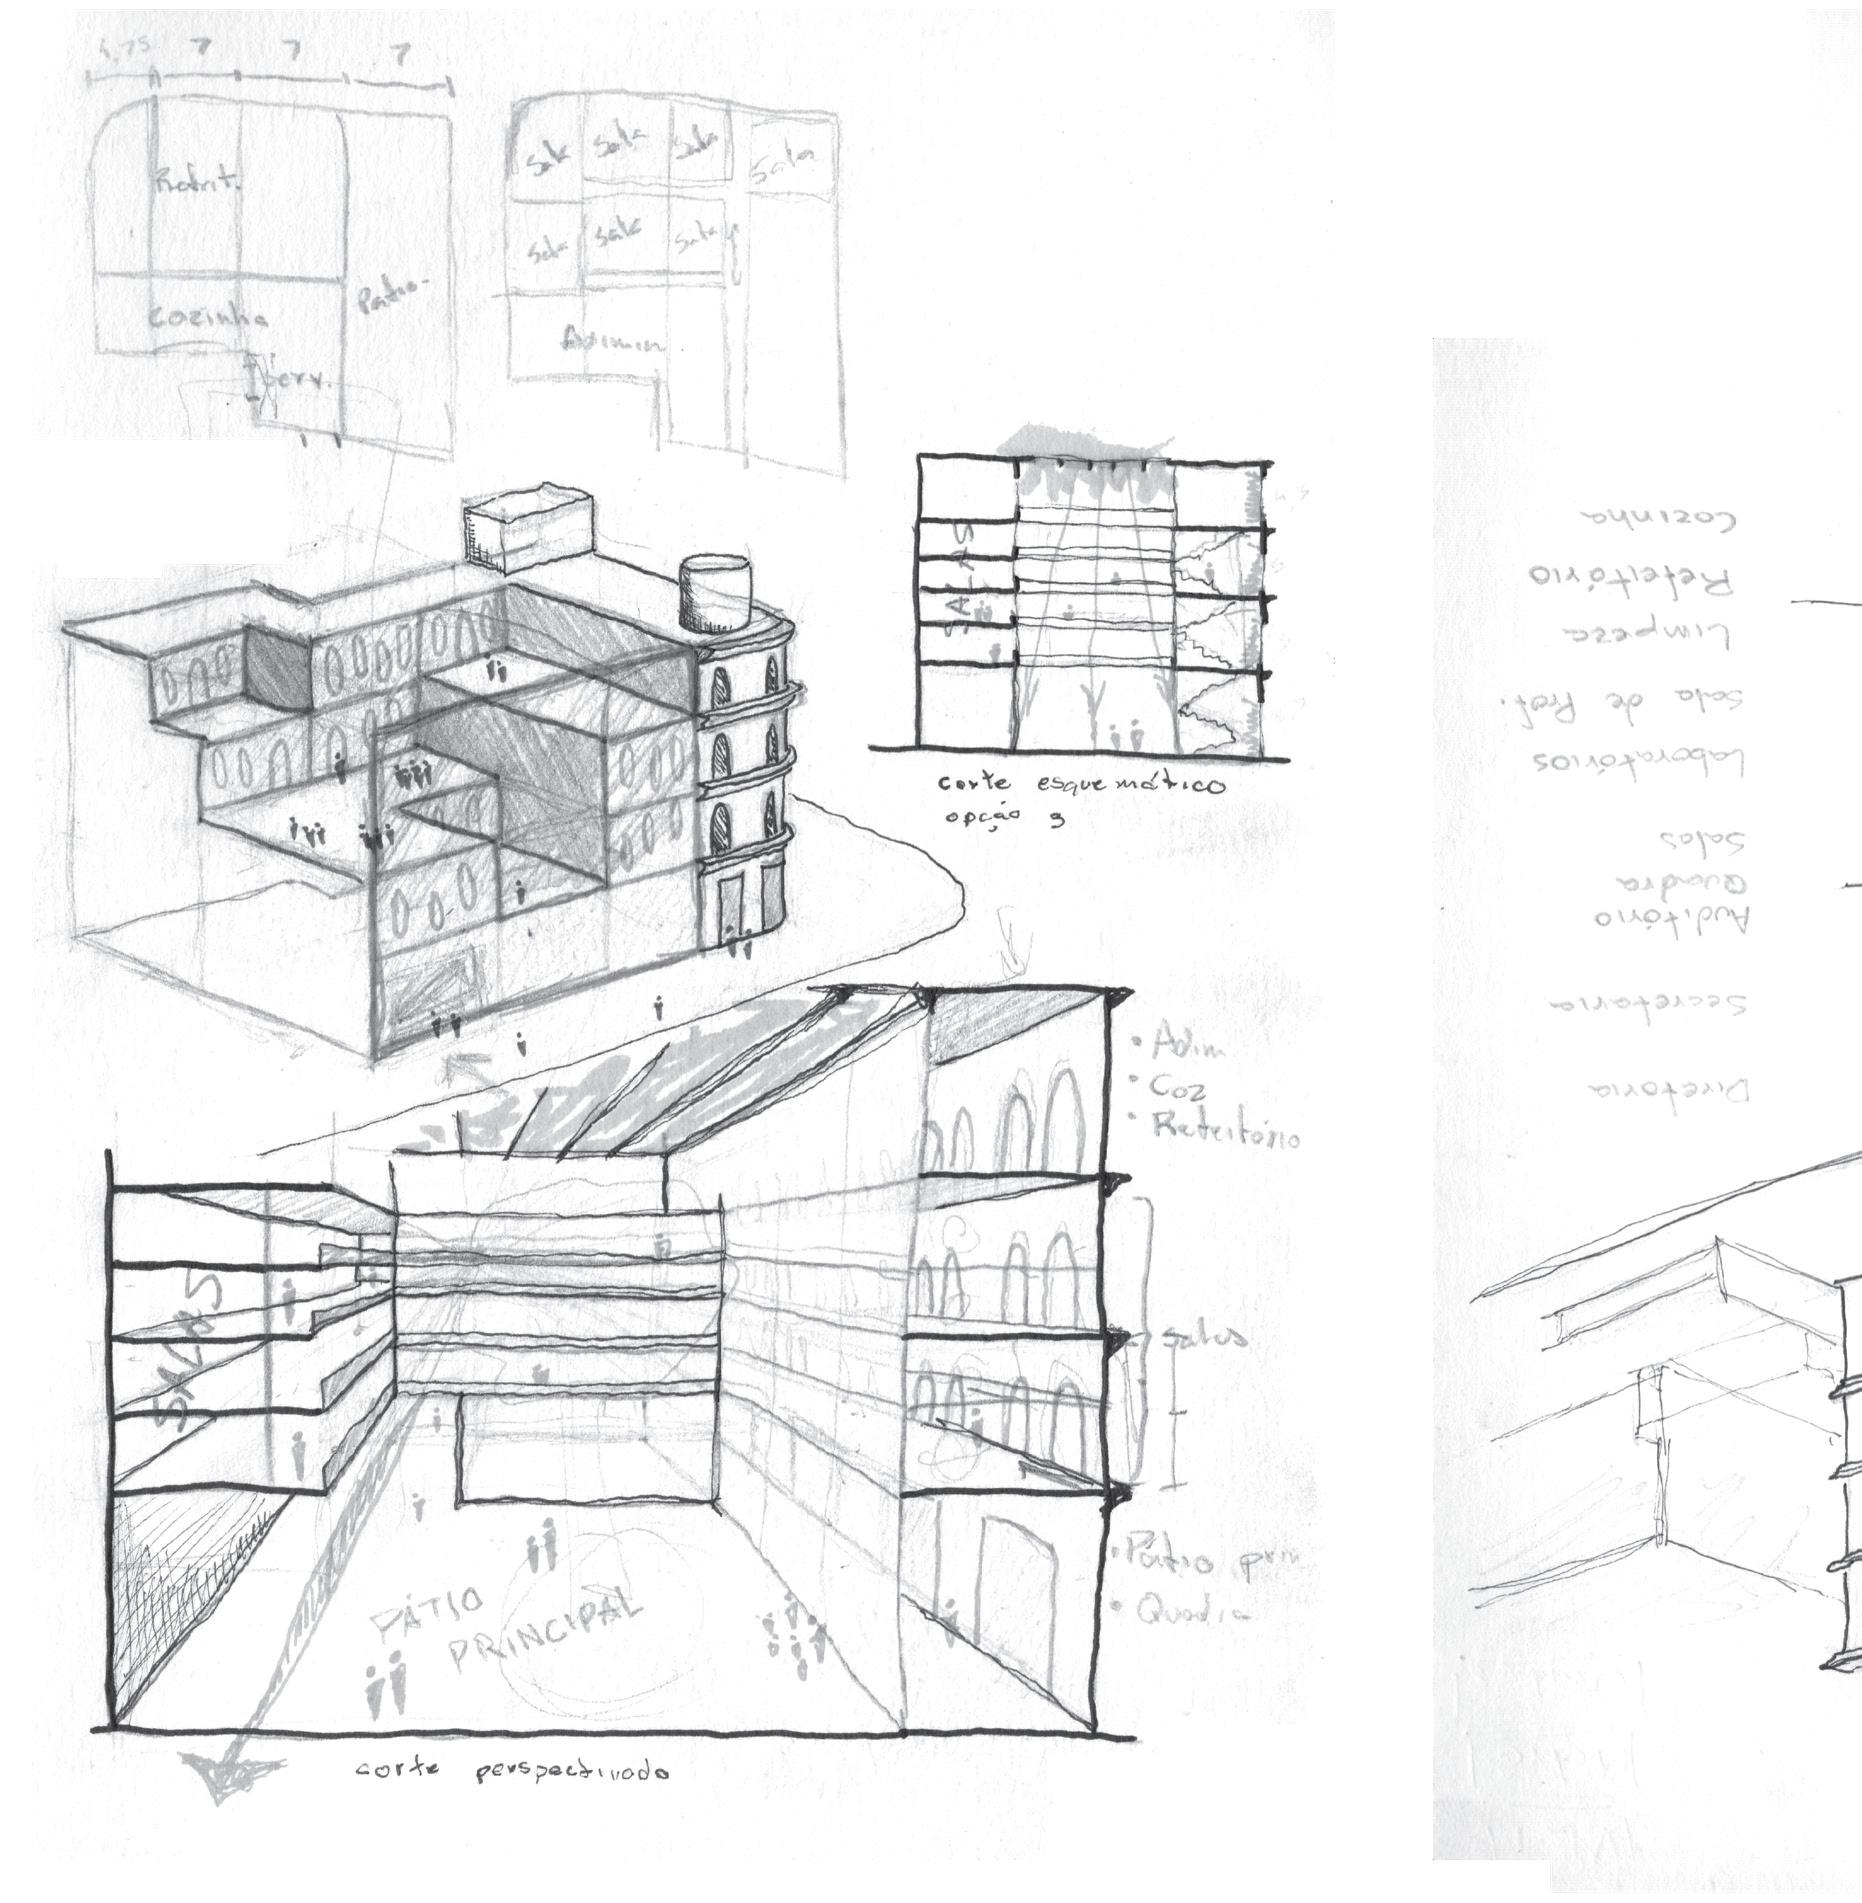 5,75 7 7 7
Refeit.
Cozinha
Patio
Serv.
Sala Sala Sala Sala
Sala Sala Sala
SALAS
corte esquemático
opção 3
• Adim
• Coz
• Refeitório
SALAS
salas
PÁTIO
PRINCIPAL
• Pátio prin
• Quadra
corte perspectivado
Cozinha
Refeitório
Limpeza
Sala de Prof.
Laboratórios
Salas
Quadra
Auditório
Secretaria
Diretoria